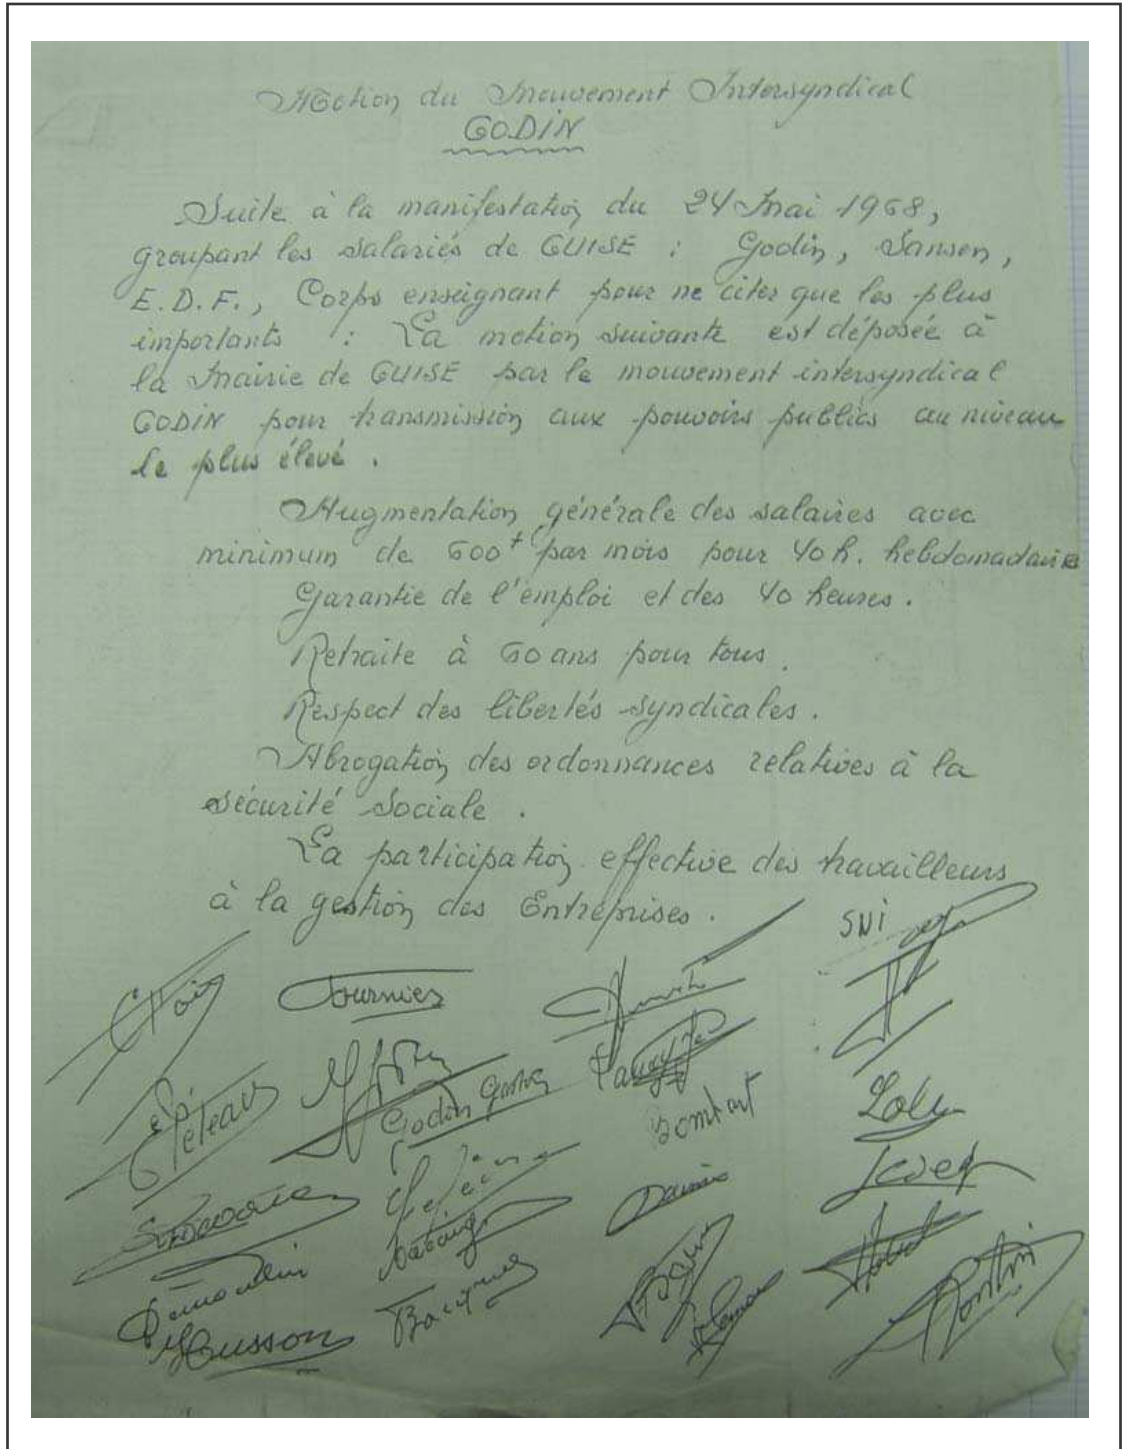 Motion du Mouvement Intersyndical
GODIN
Suite à la manifestation du 24 Mai 1968,
groupant les salariés de GUISE : Godin, Sansen,
E.D.F., Corps enseignant pour ne citer que les plus
importants : La motion suivante est déposée à
la Mairie de GUISE par le mouvement intersyndical
GODIN pour transmission aux pouvoirs publics au niveau
le plus élevé.
Augmentation générale des salaires avec
minimum de 600f par mois pour 40 h. hebdomadaires
Garantie de l'emploi et des 40 heures.
Retraite à 60 ans pour tous.
Respect des libertés syndicales.
Abrogation des ordonnances relatives à la
sécurité Sociale.
La participation effective des travailleurs
à la gestion des Entreprises.
SNI
Fournier
Godin
Dumoulin
Husson